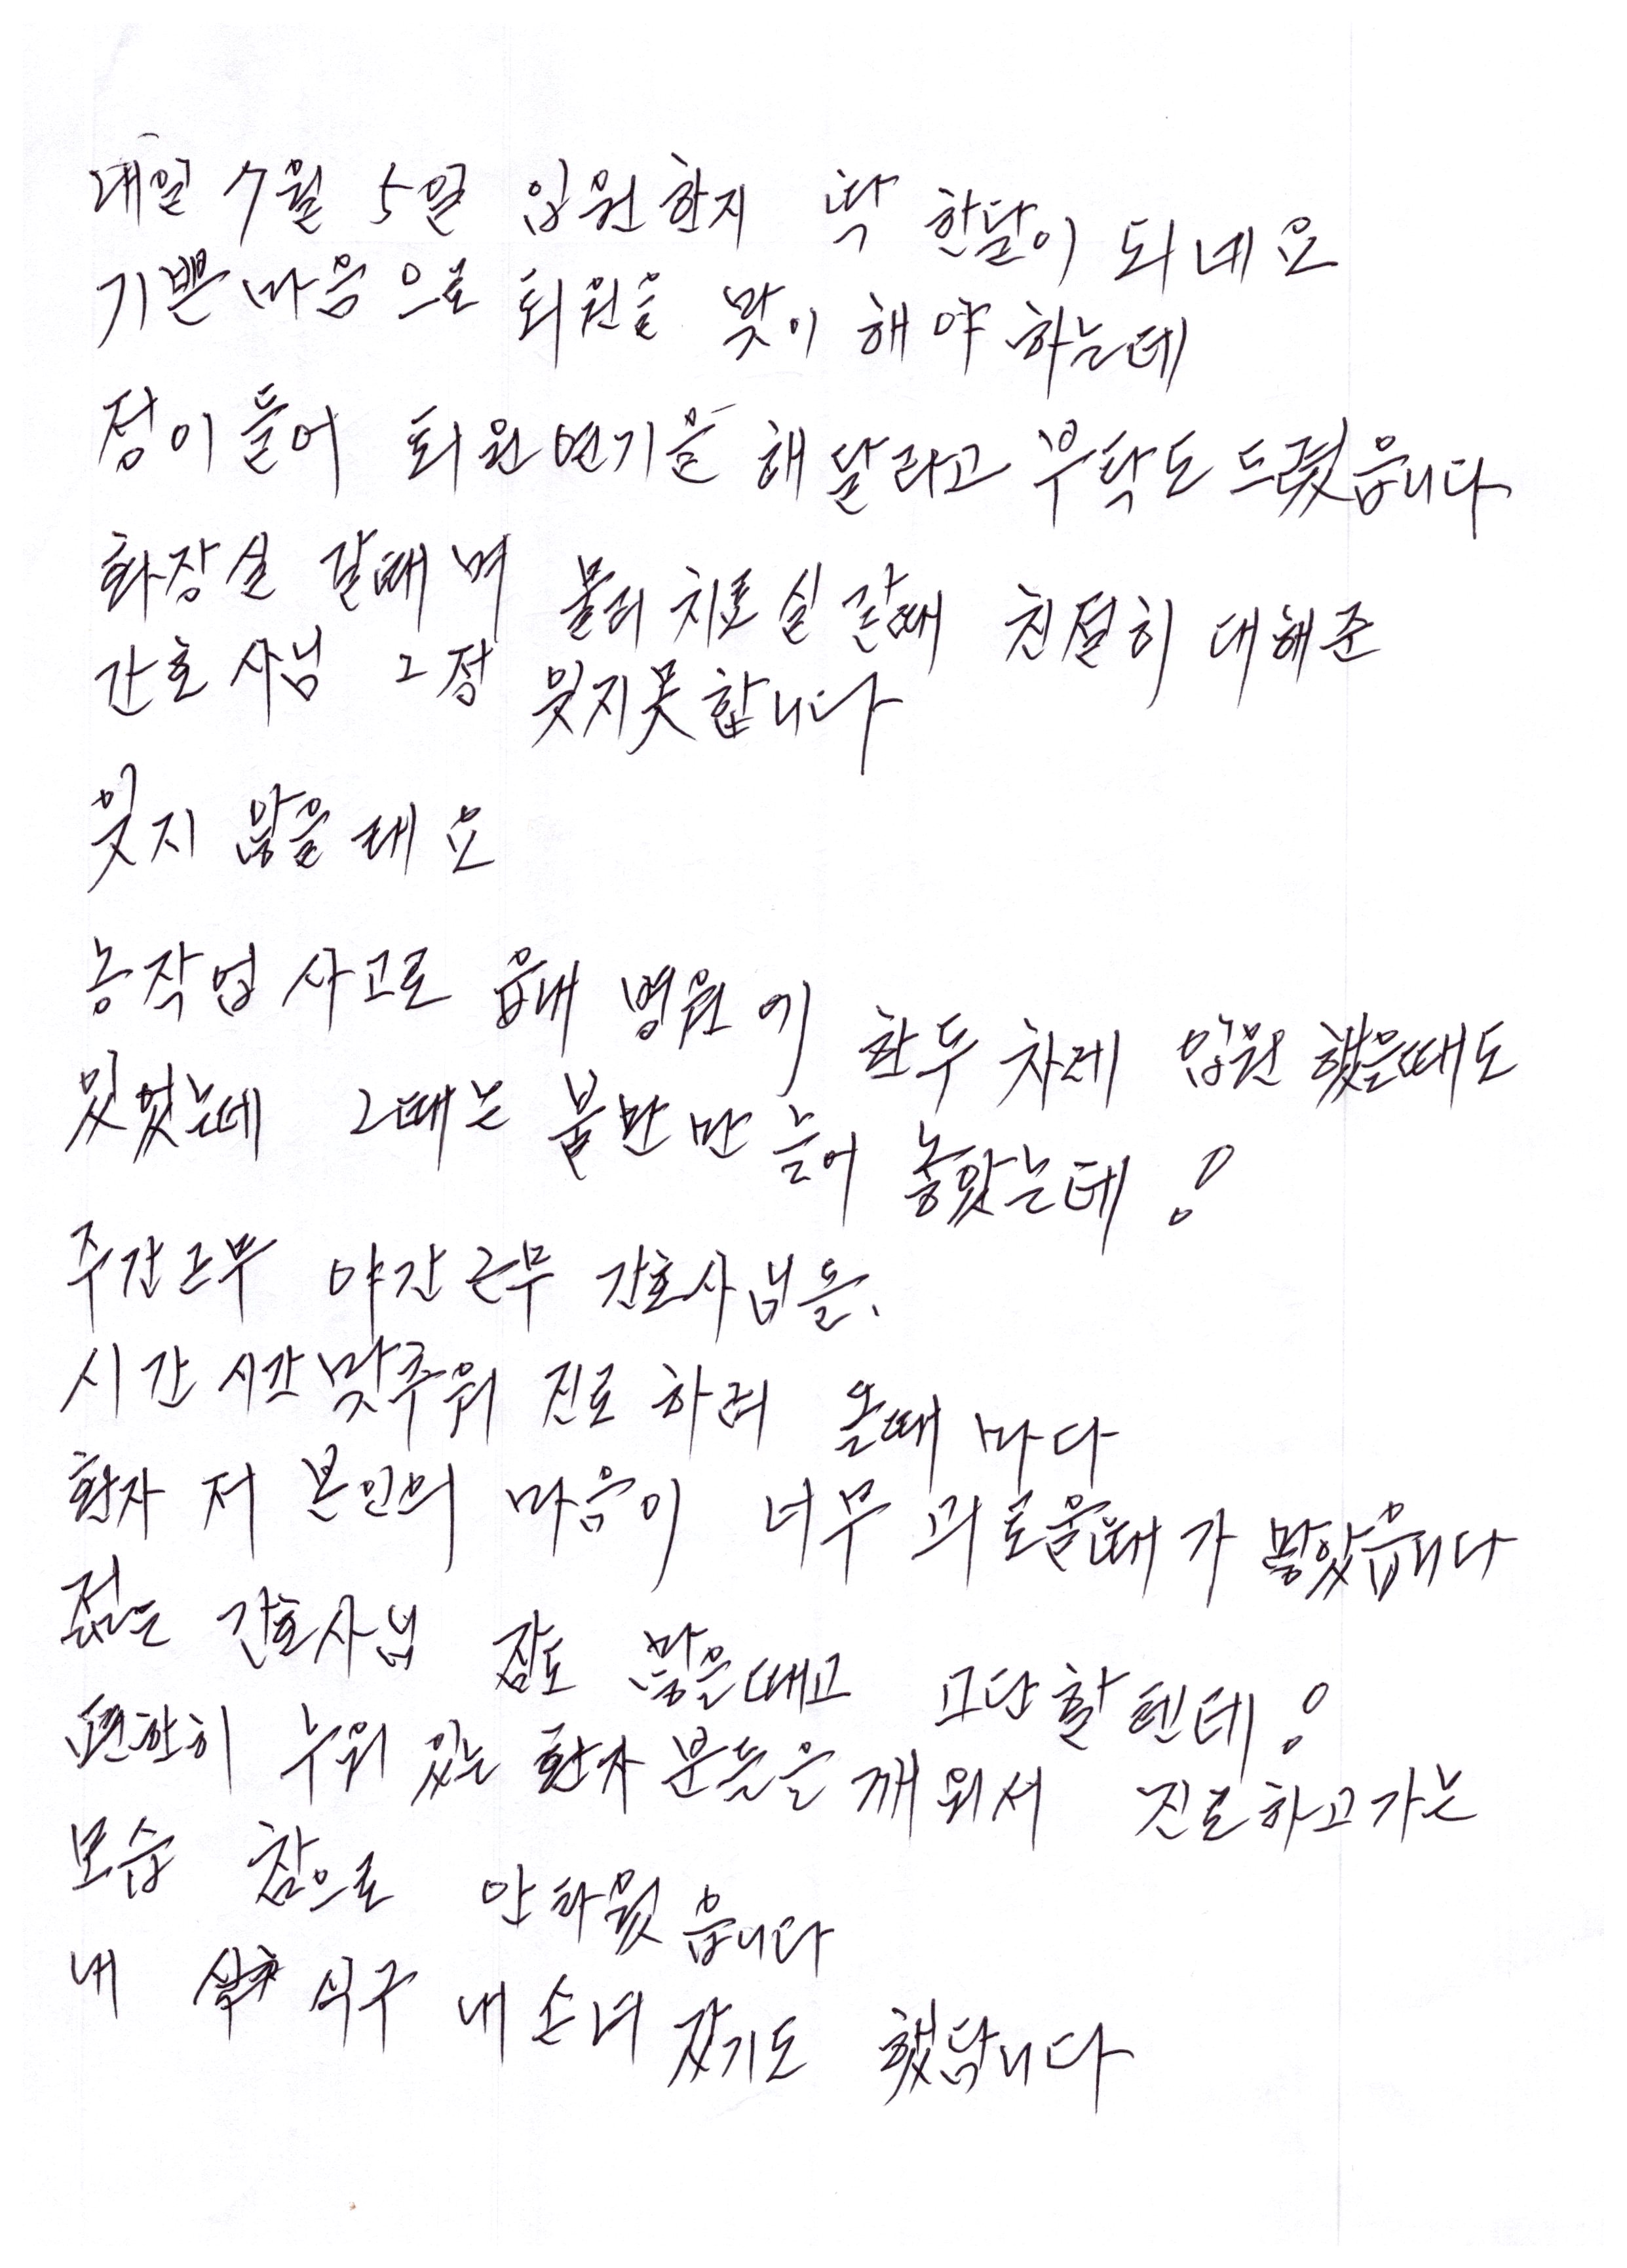 내일 7월 5일 입원한지 딱 한달이 되네요
기쁜마음으로 퇴원을 맞이 해야 하는데
정이들어 퇴원연기을 해달라고 부탁도 드렸읍니다
화장실 갈때며 물리치료실 갈때 친절히 대해준
간호사님 그정 잊지못합니다
잊지 않을테요
농작업사고로 읍내 병원에 한두차례 입원 했을때도
있었는데 그때는 불만만 늘어 놓았는데!
주간근무 야간근무 간호사님들.
시간 시간 맞추워 진료 하려 올때 마다
환자 저 본인의 마음이 너무 괴로울때가 많았읍니다
젊은 간호사님 잠도 많을때고 고단할텐데!
편한히 누워있는 환자분들을 깨워서 진료하고가는
모습 참으로 안타웠읍니다
내 식구 내손녀 갔기도 했담니다